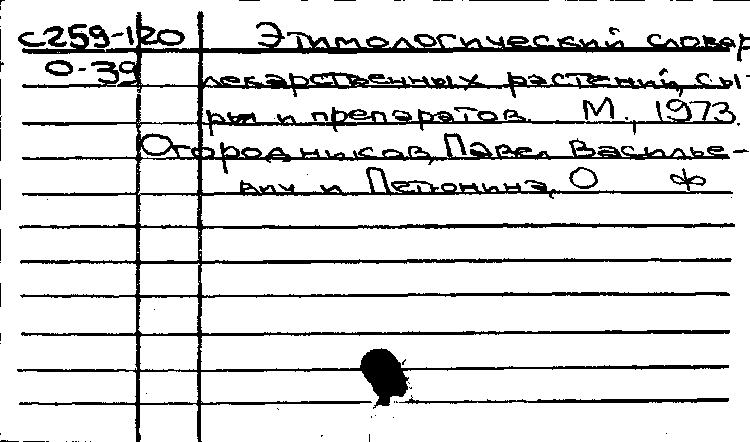 С259-120 Этимологический словар
О-39 лекарственных растений, сы-
рья и препаратов. М., 1973.
Огородников, Павел Василье-
вич и Петюнина, О Ф